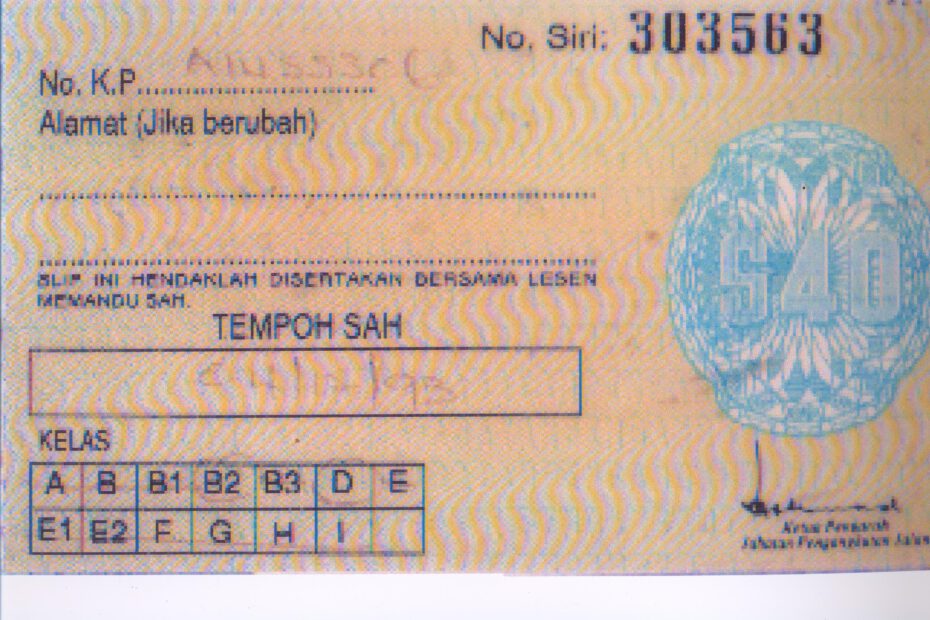 No. Siri: 303563
No. K.P.
Alamat (Jika berubah)
SLIP INI HENDAKLAH DISERTAKAN BERSAMA LESEN
MEMANDU SAH.
TEMPOH SAH
KELAS
A B B1 B2 B3 D E
E1 E2 F G H I
$40
Ketua Pengarah
Jabatan Pengangkutan Jalan